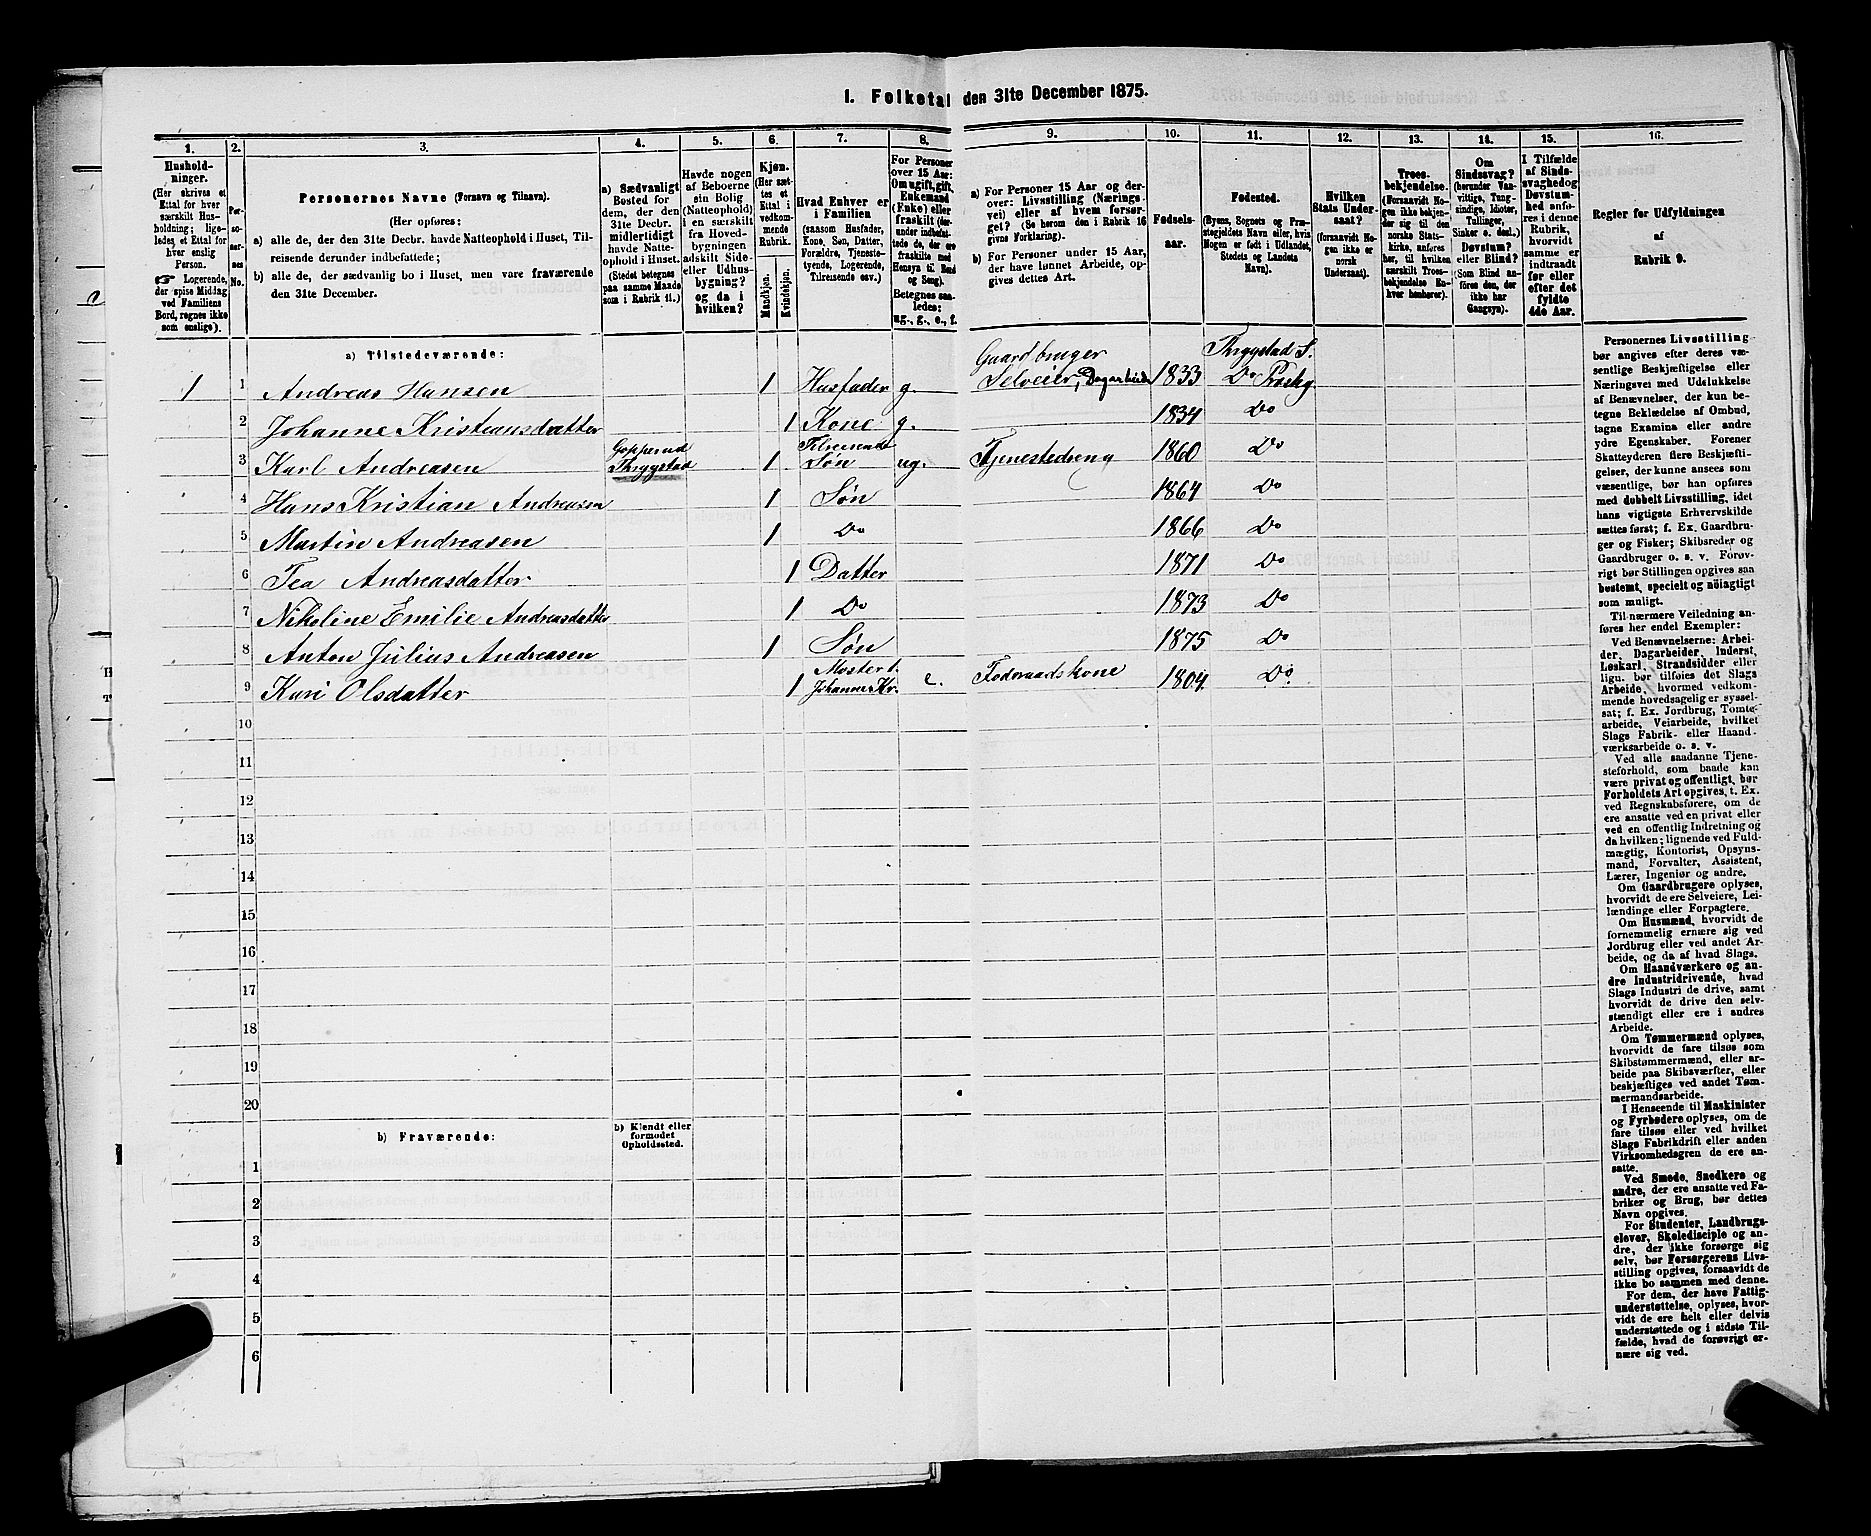 1. Folketal den 31te December 1875.
1. 2. 3. 4. 5. 6. 7. 8. 9. 10. 11. 12. 13. 14. 15. 16.
Husholdninger.
(Her skrives et
Ettal for hver
særskilt Husholdning; ligeledes et Ettal for
hver enslig
Person.
☞ Logerende,
der spise Middag
ved Familiens
Bord, regnes ikke
som enslige).
Personernes No.
Personernes Navne (Fornavn og Tilnavn).
(Her opføres:
a) alle de, der den 31te Decbr. havde Natteophold i Huset, Tilreisende derunder indbefattede;
b) alle de, der sædvanlig bo i Huset, men vare fraværende
den 31te December.
a) Sædvanligt
Bosted for
dem, der den
31te Decbr.
midlertidigt
havde Natteophold i Huset.
(Stedet betegnes
paa samme Maade
som i Rubrik 11.)
Havde nogen
af Beboerne
sin Bolig
(Natteophold)
i en særskilt
fra Hovedbygningen
adskilt Side-
eller Udhusbygning?
og da i
hvilken?
Kjøn.
(Her sættes et
Ettal i
vedkommende
Rubrik.
Mandkjøn.
Kvindekjøn.
Hvad Enhver er
i Familien
(saasom Husfader,
Kone, Søn, Datter,
Forældre, Tjenestetyende, Logerende,
Tilreisende osv.)
For Personer
over 15 Aar:
Om ugift, gift,
Enkemand
(Enke) eller
fraskilt (derunder indbefattede de, der ere
fraskilte med
Hensyn til Bord
og Seng).
Betegnes saaledes:
ug., g., e., f.
a) For Personer 15 Aar og derover: Livsstilling (Næringsvei) eller af hvem forsørget? (Se herom den i Rubrik 16
givne Forklaring).
b) For Personer under 15 Aar,
der have lønnet Arbeide, opgives dettes Art.
Fødselsaar.
Fødested.
(Byens, Sognets og Præstegjeldets Navn eller, hvis
Nogen er født i Udlandet,
Stedets og Landets
Navn).
Hvilken
Stats Undersaat?
(forsaavidt Nogen ikke er
norsk
Undersaat).
Troesbekjendelse.
(Forsaavidt Nogen ikke bekjender sig til den
norske Statskirke, anføres
her, til hvilken
særskilt Troesbekjendelse Enhver henhører).
Om
Sindssvag?
(herunder Vanvittige, Tungsindige, Idioter,
Tullinger,
Sinker o. desl.)
Døvstum?
eller Blind?
(Som Blind anføres den, der
ikke har
Gangsyn).
I Tilfælde
af Sindssvaghed og
Døvstumhed anføres i denne
Rubrik,
hvorvidt
samme er
indtraadt
før eller
efter det
fyldte
4de Aar.
Regler for Udfyldningen
af
Rubrik 9.
a) Tilstedeværende:
1 1 Andreas Hansen 1 Husfader g. Gaardbruger Selveier, Dagarbeid 1833 Thrygstad S. Do Præstg
2 Johanne Kristiansdatter 1 Kone g. 1834 Do
3 Karl Andreasen Thrygstad 1 Søn ug. Tjenestedreng 1860 Do
4 Hans Kristian Andreasen 1 Søn 1864 Do
5 Martin Andreasen 1 Do 1866 Do
6 Tea Andreasdatter 1 Datter 1871 Do
7 Nikoline Emilie Andreasdatter 1 Do 1873 Do
8 Anton Julius Andreasen 1 Søn 1875 Do
9 Kari Olsdatter 1 Moster t. Johanne Kr. e. Føderaadskone 1804 Do.
10
11
12
13
14
15
16
17
18
19
20
b) Fraværende:
b) Kjendt eller
formodet
Opholdssted.
1
2
3
4
5
6
Personernes Livsstilling
bør angives efter deres væsentlige Beskjæftigelse eller
Næringsvei med Udelukkelse
af Benævnelser, der kun betegne Beklædelse af Ombud,
tagne Examina eller andre
ydre Egenskaber. Forener
Skatteyderen flere Beskjæftigelser, der kunne ansees som
væsentlige, bør han opføres
med dobbelt Livsstilling, idet
hans vigtigste Erhvervskilde
sættes først; f. Ex. Gaardbruger og Fisker; Skibsreder og
Gaardbruger o. s. v. Forøvrigt bør Stillingen opgives saa
bestemt, specielt og nöiagtigt
som muligt.
Til nærmere Veiledning anføres her endel Exempler:
Ved Benævnelserne: Arbeider, Dagarbeider, Inderst,
Løskarl, Strandsidder eller
lign. bør tilføies det Slags
Arbeide, hvormed vedkommende hovedsagelig er sysselsat; f. Ex. Jordbrug, Tomtearbeide, Veiarbeide, hvilket
Slags Fabrik- eller Haandværksarbeide o. s. v.
Ved alle saadanne Tjenesteforhold, som baade kan
være privat og offentligt, bør
Forholdets Art opgives, t. Ex.
ved Regnskabsførere, om de
ere ansatte ved en privat eller
ved en offentlig Indretning og
da hvilken; lignende ved Fuldmægtig, Kontorist, Opsynsmand, Forvalter, Assistent,
Lærer, Ingeniør og andre.
Om Gaardbrugere oplyses,
hvorvidt de ere Selveiere, Leilændinge eller Forpagtere.
Om Husmænd, hvorvidt de
fornemmelig ernære sig ved
Jordbrug eller ved andet Arbeide, og da af hvad Slags.
Om Haandværkere og andre Industridrivende, hvad
Slags Industri de drive, samt
hvorvidt de drive den selvstændigt eller ere i andres
Arbeide.
Om Tømmermænd oplyses,
hvorvidt de fare tilsøs som
Skibstømmermænd, eller arbeide paa Skibsværfter, eller
beskjæftiges ved andet Tømmermandsarbeide.
I Henseende til Maskinister
og Fyrbødere oplyses, om de
fare tilsøs eller ved hvilket
Slags Fabrikdrift eller anden
Virksomhedsgren de ere ansatte.
Ved Smede, Snedkere og
andre, der ere ansatte ved Fabriker og Brug, bør dettes
Navn opgives.
For Studenter, Landbrugselever, Skoledisciple og andre, der ikke forsørge sig
selv, bør Forsørgerens Livsstilling opgives, forsaavidt de
ikke bo sammen med denne.
For dem, der have Fattigunderstøttelse, oplyses, hvorvidt de ere helt eller delvis
understøttede og i sidste Tilfælde, hvad de forøvrigt ernære sig ved.